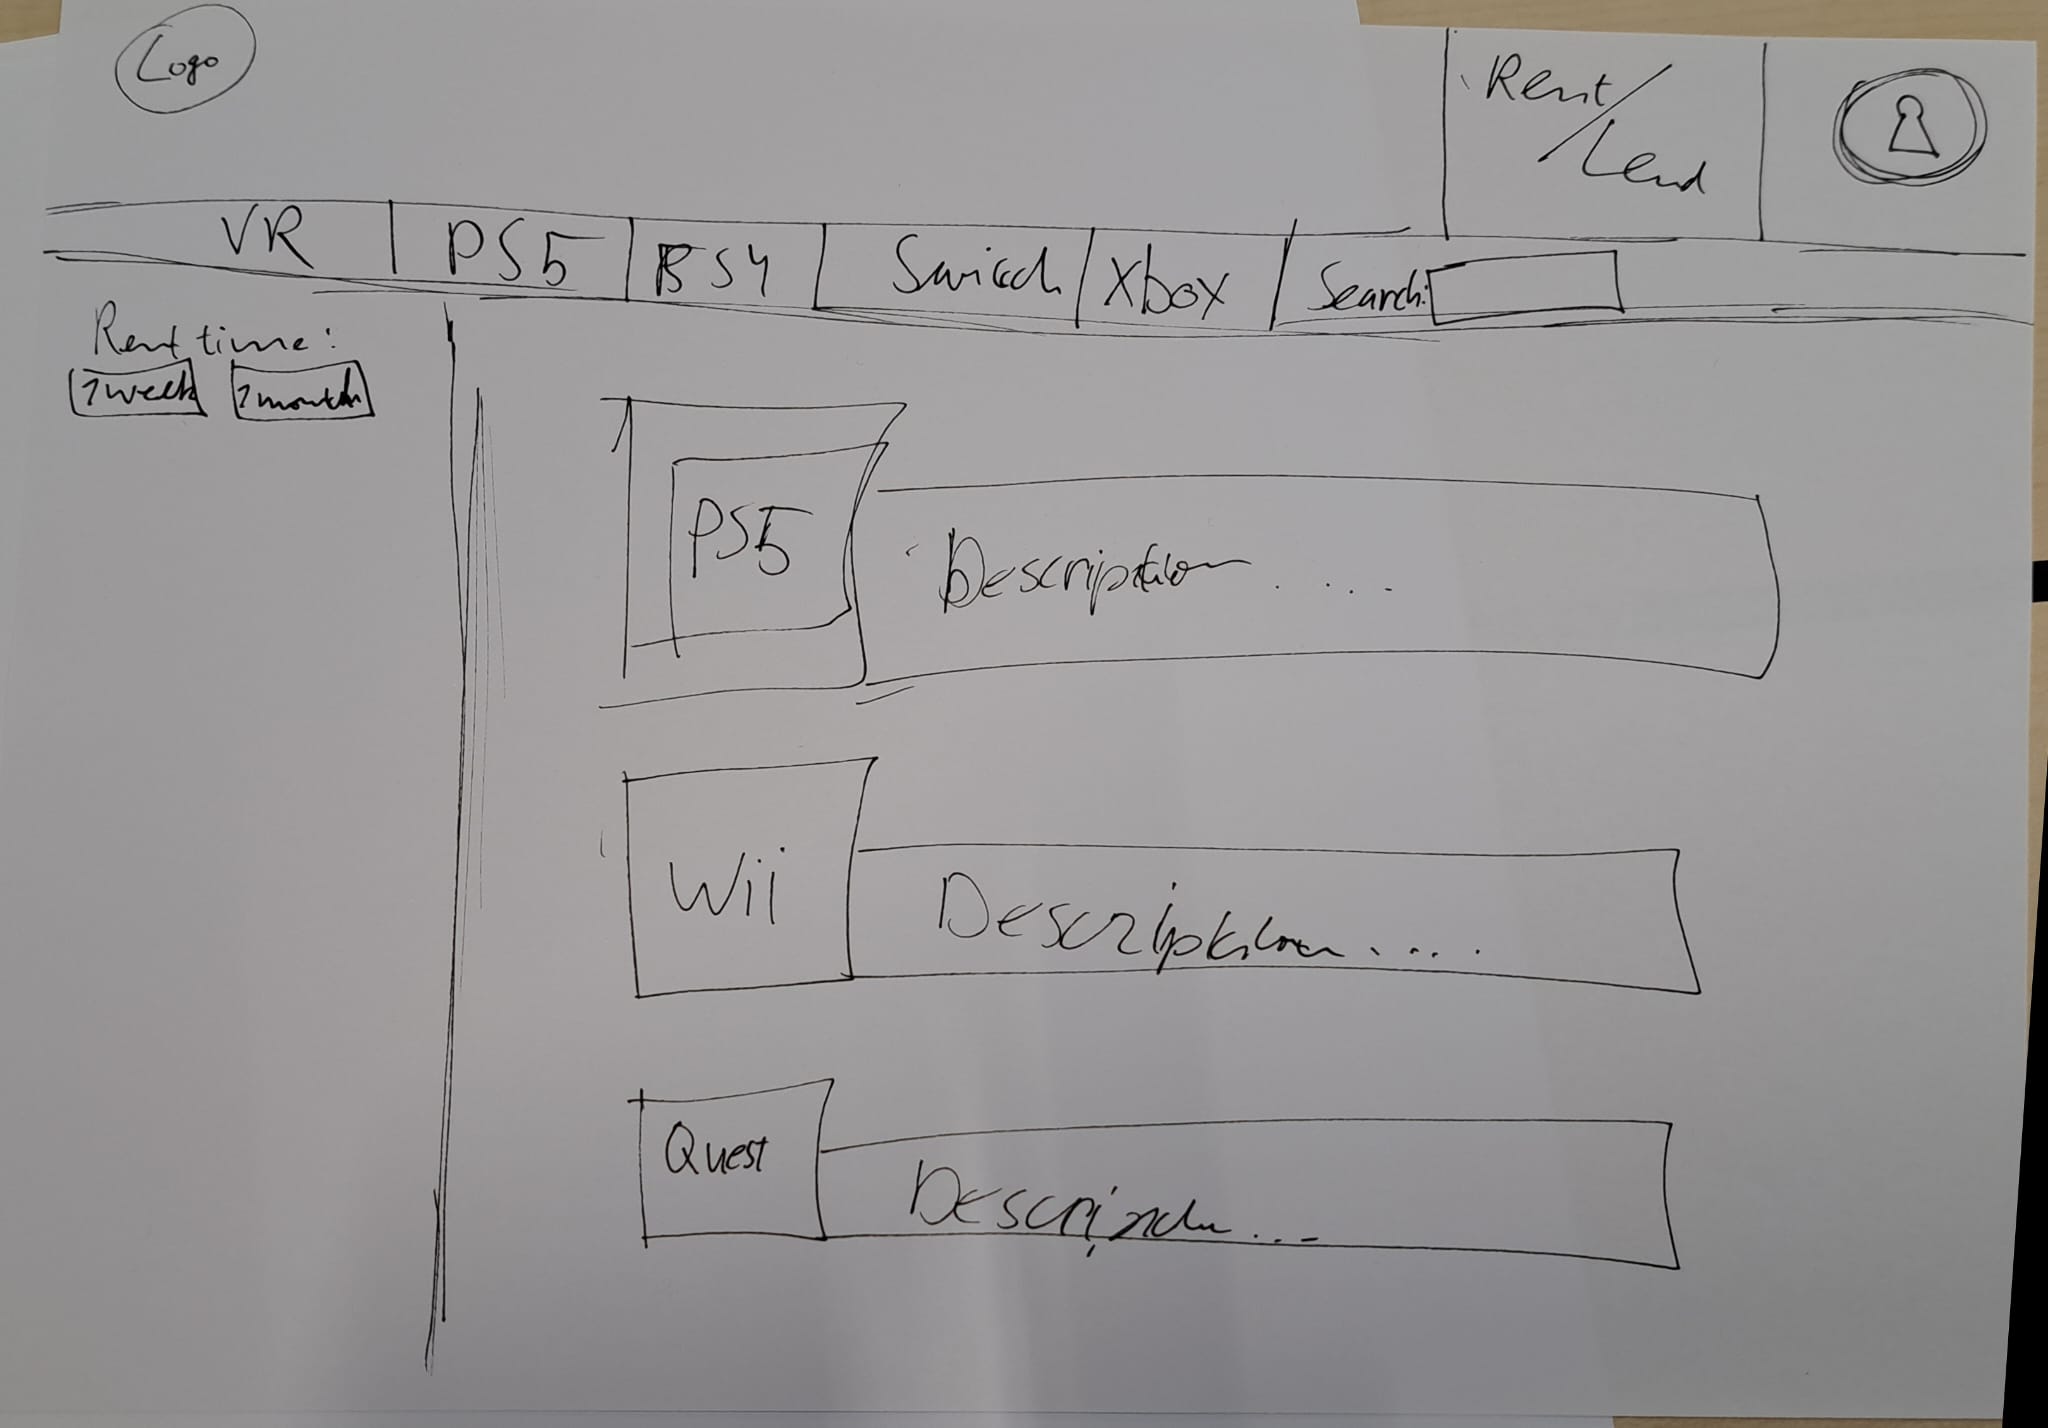 Logo
Rent/
Lend
VR PS5 PS4 Switch Xbox Search:
Rent time:
1 week 1 month
PS5 Description.....
Wii Description.....
Quest Description...